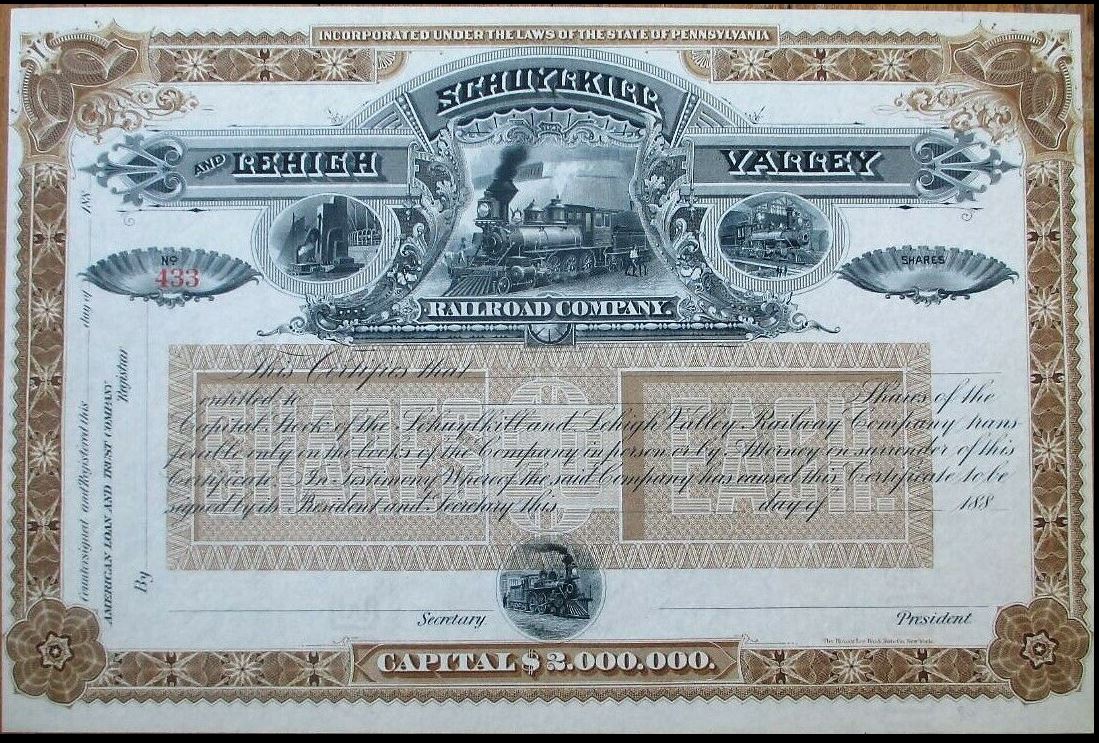 INCORPORATED UNDER THE LAWS OF THE STATE OF PENNSYLVANIA
SCHUYLKILL
AND LEHIGH VALLEY
RAILROAD COMPANY.
No
433
SHARES
This Certifies that
entitled to Shares of the
Capital Stock of the Schuylkill and Lehigh Valley Railway Company trans
ferable only in the books of the Company in person or by Attorney on surrender of this
Certificate. In Testimony Whereof the said Company has caused this Certificate to be
signed by its President and Secretary this day of 188
SHARES $ EACH.
Secretary
President
CAPITAL $2.000.000.
Countersigned and Registered this day of 188
AMERICAN LOAN AND TRUST COMPANY
Registrar
By